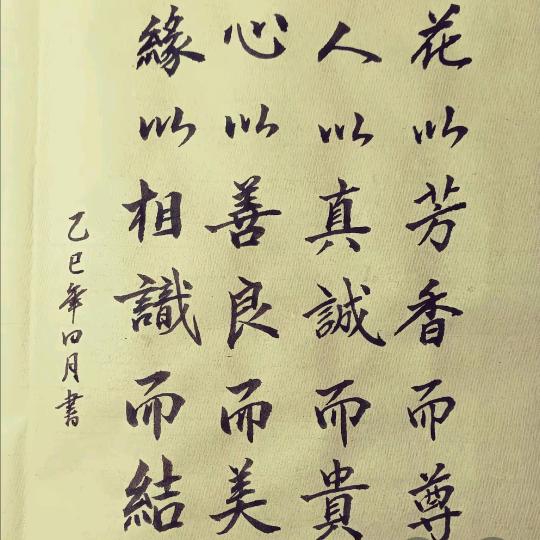 花以芳香而尊
人以真誠而貴
心以善良而美
緣以相識而結
乙巳年四月書